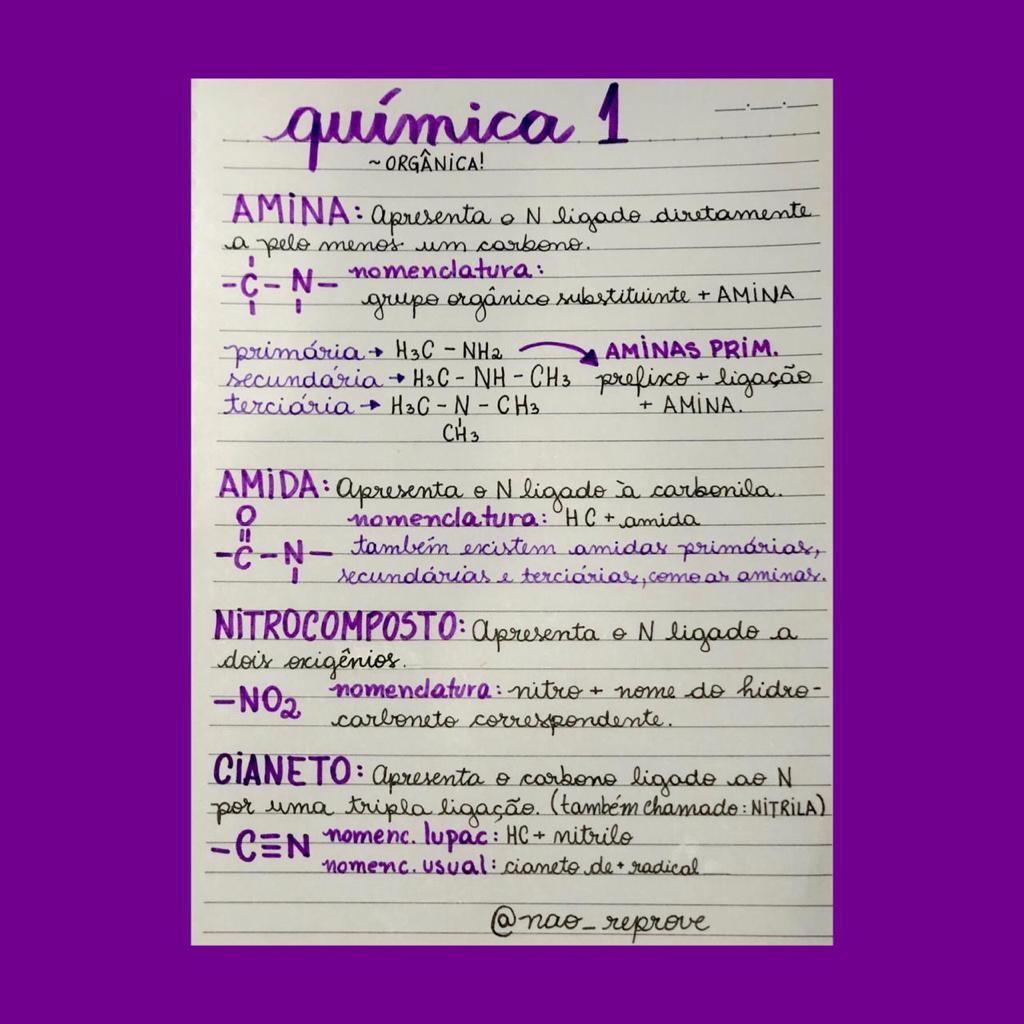 química 1
~ ORGÂNICA!
AMINA: Apresenta o N ligado diretamente
a pelo menos um carbono.
-C-N- nomenclatura:
grupo orgânico substituinte + AMINA
primária → H3C - NH2 → AMINAS PRIM.
secundária → H3C - NH - CH3 prefixo + ligação
terciária → H3C - N - CH3 + AMINA.
CH3
AMIDA: Apresenta o N ligado à carbonila.
O nomenclatura: HC + amida
-C-N- também existem amidas primárias,
secundárias e terciárias, como as aminas.
NITROCOMPOSTO: Apresenta o N ligado a
dois oxigênios.
-NO2 nomenclatura: nitro + nome do hidro-
carboneto correspondente.
CIANETO: Apresenta o carbono ligado ao N
por uma tripla ligação. (também chamado: NITRILA)
-C≡N nomenc. Iupac: HC + nitrilo
nomenc. usual: cianeto de + radical
@nao_reprove